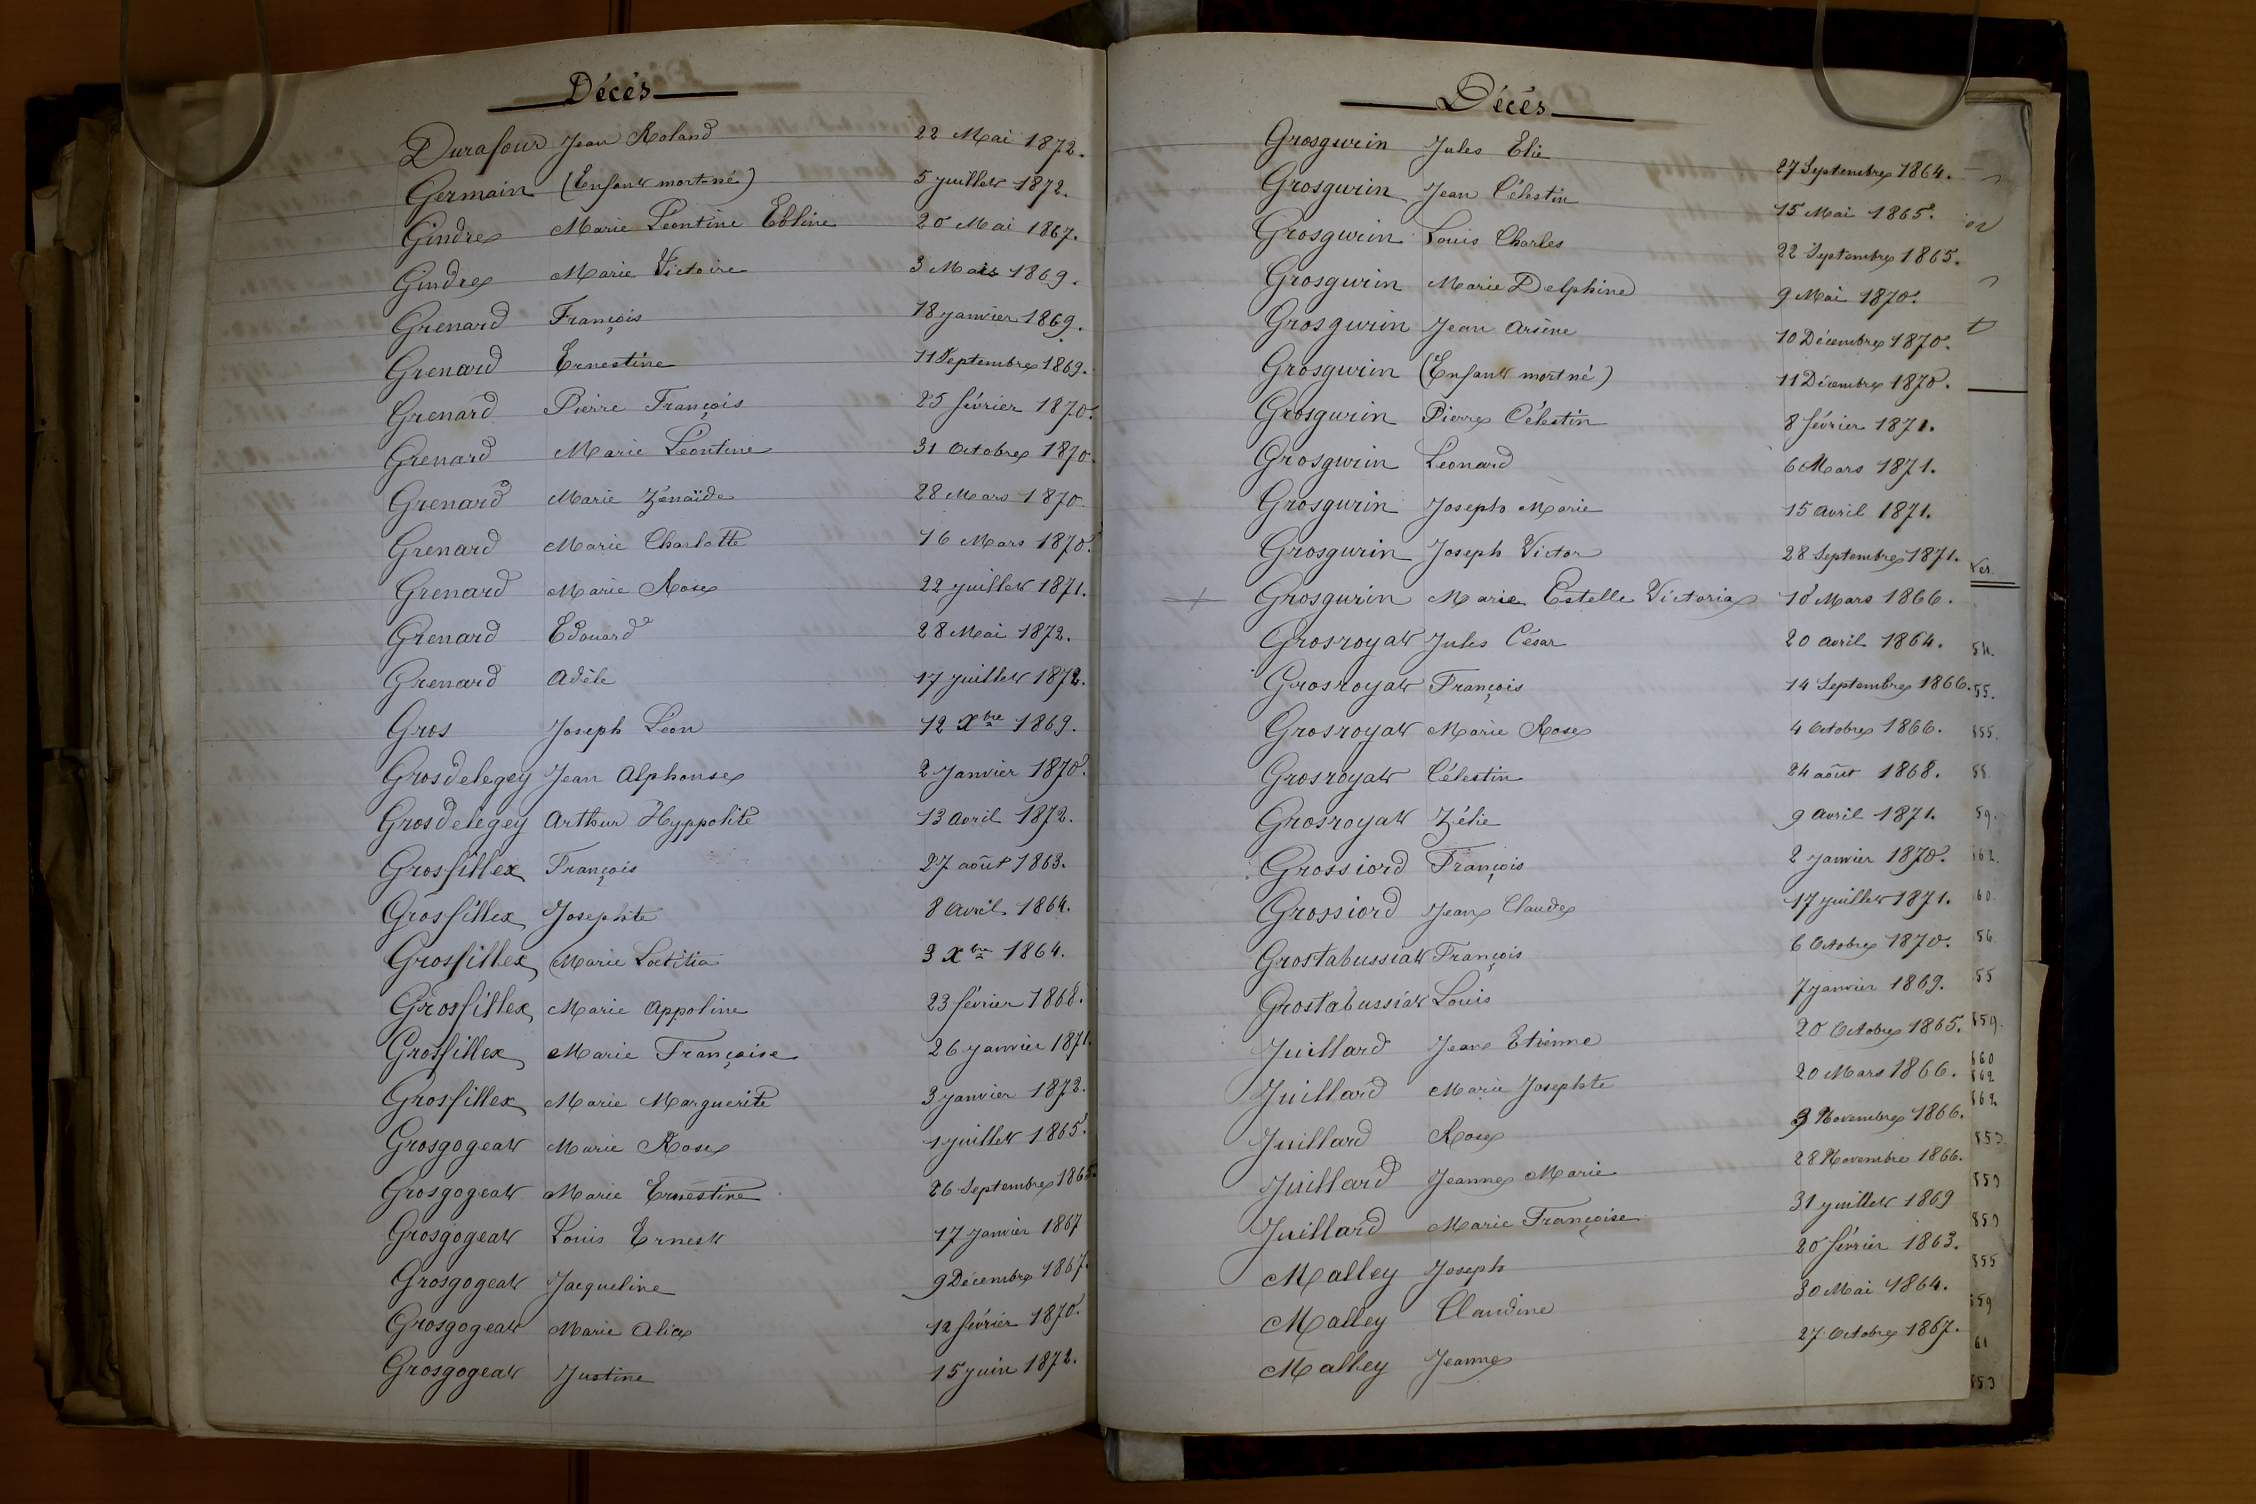 Décès
Durafour Jean Roland 22 Mai 1872.
Germain (Enfant mort-né) 5 juillet 1872.
Gindre Marie Léontine Ebline 20 Mai 1867.
Gindre Marie Victoire 3 Mars 1869.
Grenard François 18 janvier 1869.
Grenard Ernestine 11 Septembre 1869.
Grenard Pierre François 25 février 1870.
Grenard Marie Léontine 31 Octobre 1870.
Grenard Marie Zénaïde 28 Mars 1870
Grenard Marie Charlotte 16 Mars 1870.
Grenard Marie Rose 22 juillet 1871.
Grenard Edouard 28 Mai 1872.
Grenard Adèle 17 juillet 1872.
Gros Joseph Léon 12 Xbre 1869.
Grosdelegey Jean Alphonse 2 Janvier 1870.
Grosdelegey Arthur Hyppolite 13 Avril 1872.
Grosfillex François 27 août 1863.
Grosfillex Josephte 8 Avril 1864.
Grosfillex Marie Loetitia 3 Xbre 1864.
Grosfillex Marie Appoline 23 février 1868.
Grosfillex Marie Françoise 26 janvier 1871.
Grosfillex Marie Marguerite 3 janvier 1872.
Grosgogeat Marie Rose 1 juillet 1865.
Grosgogeat Marie Ernestine 26 Septembre 1865.
Grosgogeat Louis Ernest 17 janvier 1867
Grosgogeat Jacqueline 9 Décembre 1867.
Grosgogeat Marie Alice 12 février 1870.
Grosgogeat Justine 15 juin 1872.
Décès
Grosgurin Jules Elie 27 Septembre 1864.
Grosgurin Jean Célestin 15 Mai 1865.
Grosgurin Louis Charles 22 Septembre 1865.
Grosgurin Marie Delphine 9 Mai 1870.
Grosgurin Jean Arsène 10 Décembre 1870.
Grosgurin (Enfant mort né) 11 Décembre 1870.
Grosgurin Pierre Célestin 8 février 1871.
Grosgurin Léonard 6 Mars 1871.
Grosgurin Joseph Marie 15 Avril 1871.
Grosgurin Joseph Victor 28 Septembre 1871.
Grosgurin Marie Estelle Victoria 10 Mars 1866.
Grosroyat Jules César 20 Avril 1864.
Grosroyat François 14 Septembre 1866.
Grosroyat Marie Rose 4 Octobre 1866.
Grosroyat Célestin 24 août 1868.
Grosroyat Zélie 9 Avril 1871.
Grossiord François 2 janvier 1870.
Grossiord Jean Claude 17 juillet 1871.
Grostabussiat François 6 Octobre 1870.
Grostabussiat Louis 7 janvier 1869.
Juillard Jean Etienne 20 Octobre 1865.
Juillard Marie Josephte 20 Mars 1866.
Juillard Rose 3 Novembre 1866.
Juillard Jeanne Marie 28 Novembre 1866.
Juillard Marie Françoise 31 juillet 1869
Malley Joseph 20 février 1863.
Malley Claudine 30 Mai 1864.
Malley Jeanne 27 Octobre 1867.